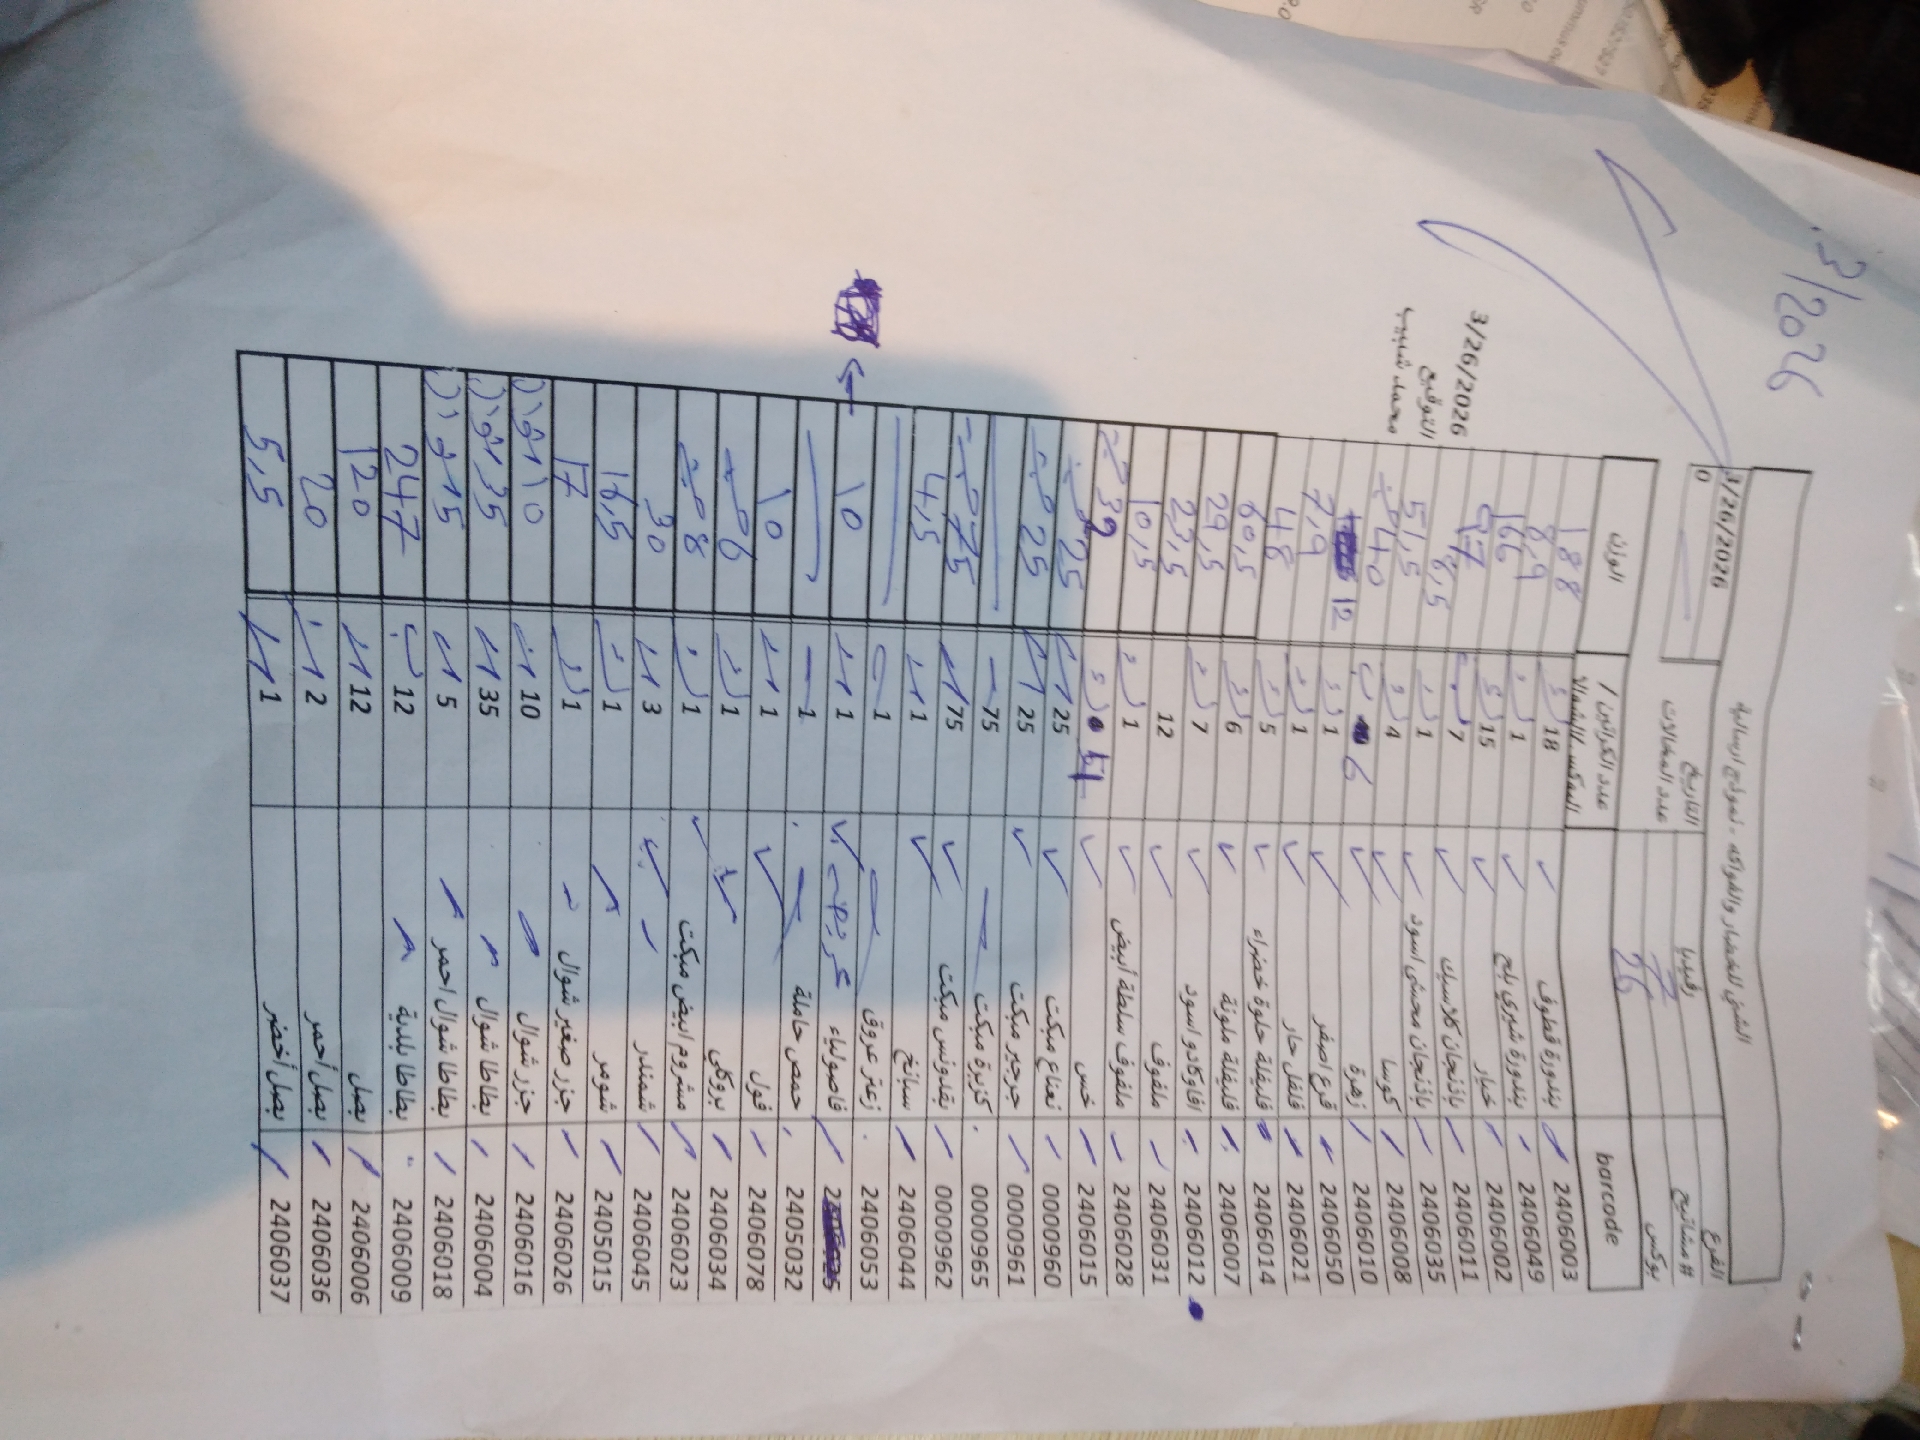 3/2026
الشني للخضار والفواكه - نموذج ارسالية
الفرع رفيديا التاريخ 3/26/2026
# مشاتيح عدد المشالات 0
بوكس 26
barcode عدد الكراتين / البوكس / الشوالات الوزن
2406003 بندورة قطوف 18 188
2406049 بندورة شيري بلح 1 8,9
2406002 خيار 15 166
2406011 باذنجان كلاسيك 7 97
2406035 باذنجان محشي اسود 1 8,5
2406008 كوسا 4 51,5
2406010 زهرة 6 40
2406050 قرع اصفر 1 12
2406021 فلفل حار 1 7,9
2406014 فليفلة حلوة خضراء 5 48
2406007 فليفلة ملونة 6 60,5
2406012 افاوكادو اسود 7 29,5
2406031 ملفوف 12 23,5
2406028 ملفوف سلطة أبيض 1 10,5
2406015 خس 39
0000960 نعناع مبكت 25 25
0000961 جرجير مبكت 25 25
0000965 كزبرة مبكت 75
0000962 بقدونس مبكت 75 75
2406044 سبانخ 1 4,5
2406053 زعتر عروق 1
فاصولياء 1 10
2405032 حمص حاملة 1
2406078 فول 1 10
2406034 بروكلي 1 6
2406023 مشروم ابيض مبكت 1 8
2406045 شمندر 3 30
2405015 شومر 1 16,5
2406026 جزر صغير شوال 1 17
2406016 جزر شوال 10 10 شوال
2406004 بطاطا شوال 35 35 شوال
2406018 بطاطا شوال احمر 5 5 شوال
2406009 بطاطا بلدية 12 247
2406006 بصل 12 120
2406036 بصل أحمر 2 20
2406037 بصل أخضر 1 5,5
3/26/2026
التوقيع
محمد شبيب